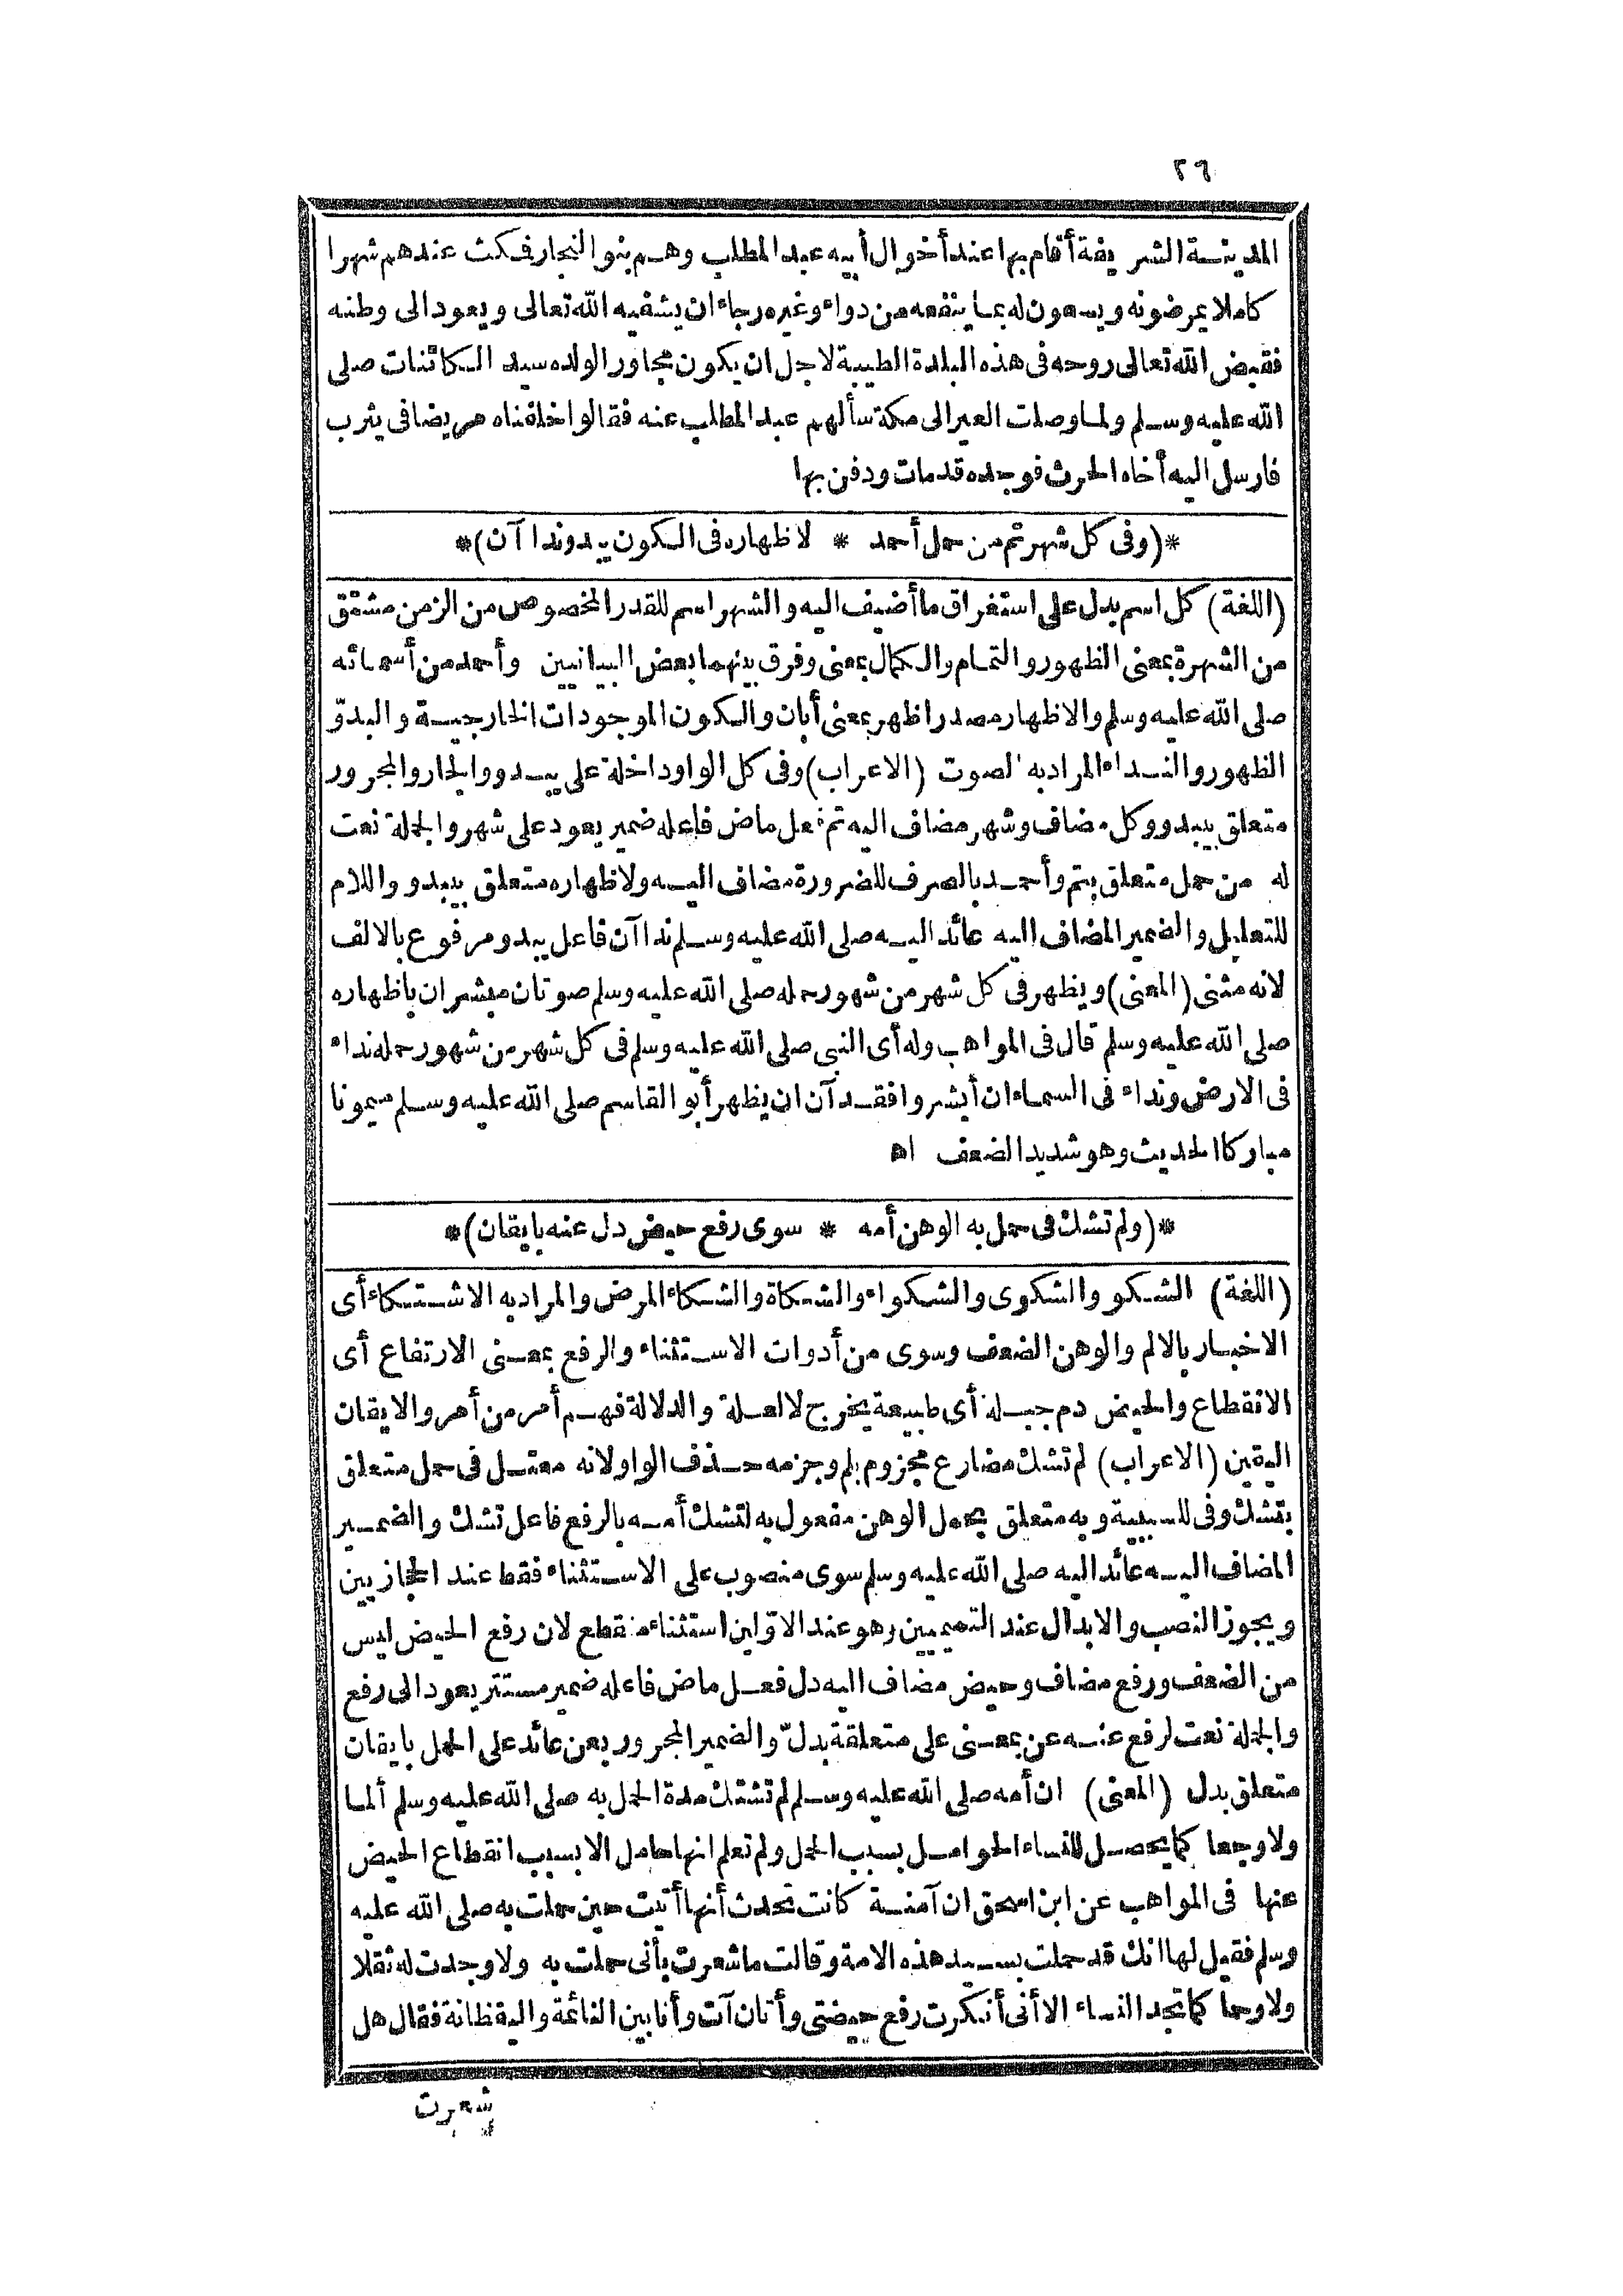 ٢٦
المدينة الشريفة أقام بها عند أخوال أبيه عبد المطلب وهم بنو النجار فمكث عندهم شهرا
كاملا يمرضونه ويسعون له بما ينفعه من دواء وغيره رجاء ان يشفيه الله تعالى ويعود الى وطنه
فقبض الله تعالى روحه فى هذه البلدة الطيبة لاجل ان يكون مجاورا لولده سيد الكائنات صلى
الله عليه وسلم ولما وصلت العير الى مكة سألهم عبد المطلب عنه فقالوا خلفناه مريضا فى يثرب
فارسل اليه أخاه الحرث فوجده قد مات ودفن بها
*(وفى كل شهر تم من حمل أحمد * لاظهاره فى الكون يبدو ندا آن)*
(اللغة) كل اسم يدل على استغراق ما أضيف اليه والشهر اسم للقدر المخصوص من الزمن مشتق
من الشهرة بمعنى الظهور والتمام والكمال بمعنى وفرق بينهما بعض البيانيين وأحمد من أسمائه
صلى الله عليه وسلم والاظهار مصدر اظهر بمعنى أبان والكون الموجودات الخارجية والبدوّ
الظهور والنداء المراد به الصوت (الاعراب) وفى كل الواو داخلة على يبدو والجار والمجرور
متعلق بيبدو وكل مضاف وشهر مضاف اليه تم فعل ماض فاعله ضمير يعود على شهر والجملة نعت
له من حمل متعلق بتم وأحمد بالصرف للضرورة مضاف اليه ولاظهاره متعلق بيبدو واللام
للتعليل والضمير المضاف اليه عائد اليه صلى الله عليه وسلم ندا آن فاعل يبدو مرفوع بالالف
لانه مثنى (المعنى) ويظهر فى كل شهر من شهور حمله صلى الله عليه وسلم صوتان مبشران باظهاره
صلى الله عليه وسلم قال فى المواهب وله أى النبى صلى الله عليه وسلم فى كل شهر من شهور حمله نداء
فى الارض ونداء فى السماء ان أبشروا فقد آن ان يظهر أبو القاسم صلى الله عليه وسلم ميمونا
مباركا الحديث وهو شديد الضعف اه
*(ولم تشك فى حمل به الوهن أمه * سوى رفع حيض دل عنه بايقان)*
(اللغة) الشكو والشكوى والشكواء والشكاة والشكاء المرض والمراد به الاشتكاء أى
الاخبار بالالم والوهن الضعف وسوى من أدوات الاستثناء والرفع بمعنى الارتفاع أى
الانقطاع والحيض دم جبلة أى طبيعة يخرج لا لعلة والدلالة فهم أمر من أمر والايقان
اليقين (الاعراب) لم تشك مضارع مجزوم بلم وجزمه حذف الواو لانه معتل فى حمل متعلق
بتشك وفى للسببية وبه متعلق بحمل الوهن مفعول به لتشك أمه بالرفع فاعل تشك والضمير
المضاف اليه عائد اليه صلى الله عليه وسلم سوى منصوب على الاستثناء فقط عند الحجازيين
ويجوز النصب والابدال عند التميميين وهو عند الاوّلين استثناء منقطع لان رفع الحيض ليس
من الضعف ورفع مضاف وحيض مضاف اليه دل فعل ماض فاعله ضمير مستتر يعود الى رفع
والجملة نعت لرفع عنه عن بمعنى على متعلقة بدلّ والضمير المجرور بعن عائد على الحمل بايقان
متعلق بدل (المعنى) ان أمه صلى الله عليه وسلم لم تشتك مدة الحمل به صلى الله عليه وسلم ألما
ولا وجعا كما يحصل للنساء الحوامل بسبب الحمل ولم تعلم انها حامل الا بسبب انقطاع الحيض
عنها فى المواهب عن ابن اسحق ان آمنة كانت تحدث أنها أتيت حين حملت به صلى الله عليه
وسلم فقيل لها انك قد حملت بسيد هذه الامة وقالت ما شعرت بأنى حملت به ولا وجدت له ثقلا
ولا وحما كما تجد النساء الا أنى أنكرت رفع حيضتى وأتان آت وأنا بين النائمة واليقظانة فقال هل
شعرت